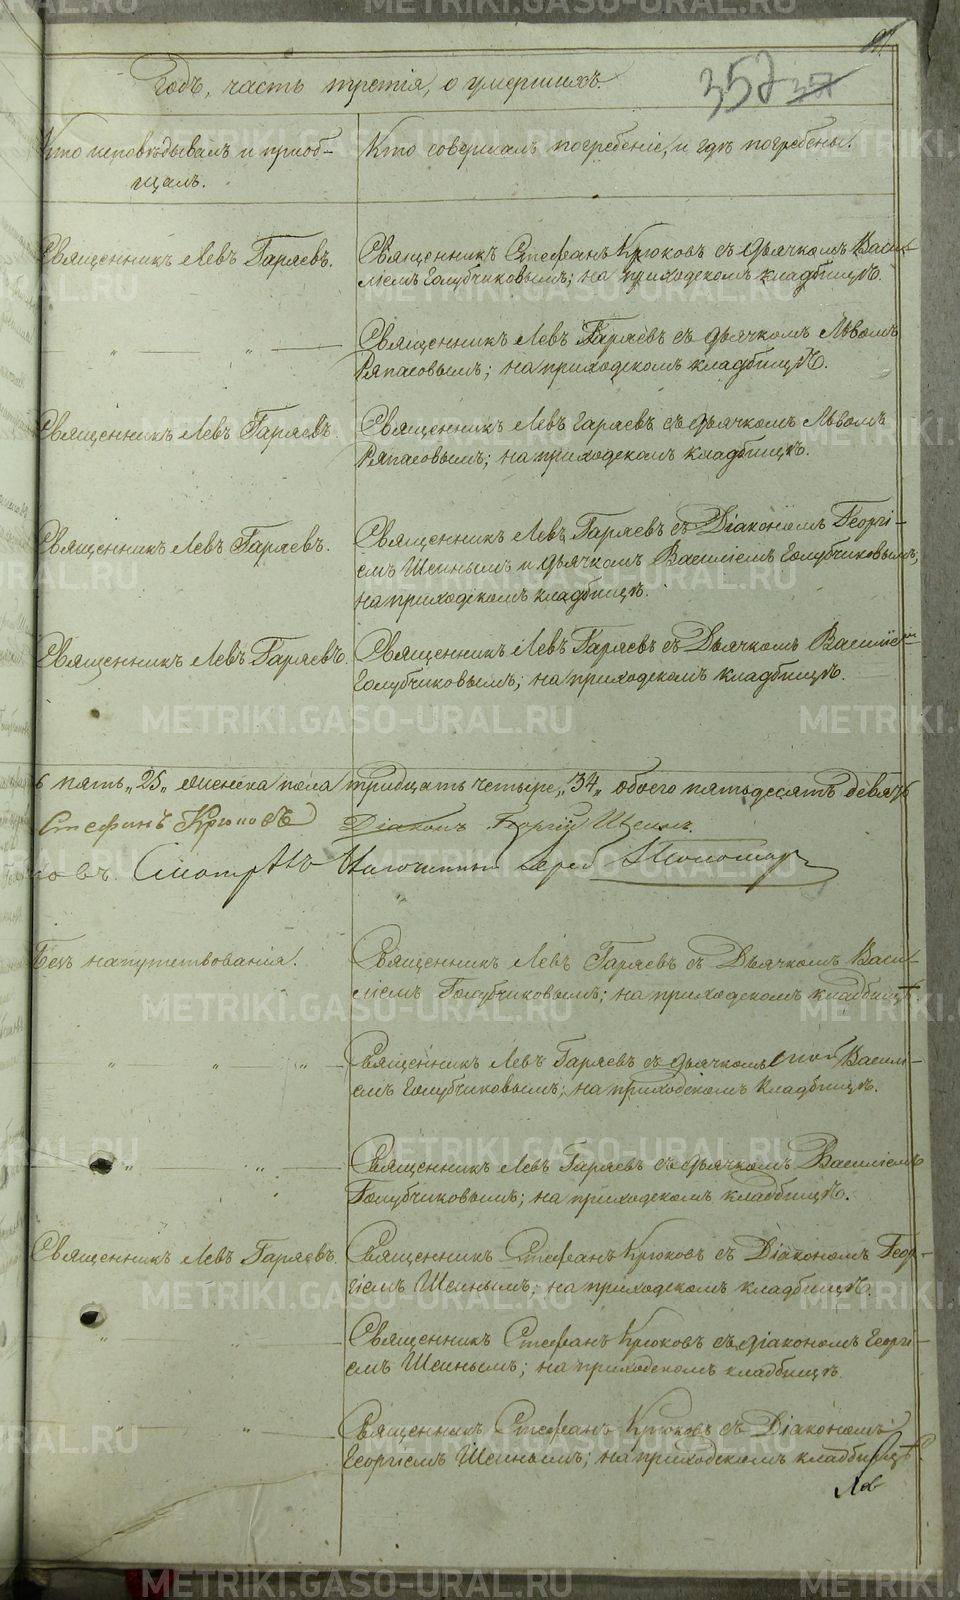 Годъ, часть третія, о умершихъ.
352
Кто исповѣдывалъ и приоб-
щалъ.
Кто совершалъ погребеніе, и гдѣ погребены.
Священникъ Левъ Гаряевъ.
Священникъ Стефанъ Крюковъ съ дьячкомъ Васи-
ліемъ Голубчиковымъ; на приходскомъ кладбищѣ.
" — " —
Священникъ Левъ Гаряевъ съ дьячкомъ Львомъ
Ряпасовымъ; на приходскомъ кладбищѣ.
Священникъ Левъ Гаряевъ.
Священникъ Левъ Гаряевъ съ дьячкомъ Львомъ
Ряпасовымъ; на приходскомъ кладбищѣ.
Священникъ Левъ Гаряевъ.
Священникъ Левъ Гаряевъ съ Діакономъ Георгі-
емъ Шеинымъ и дьячкомъ Василіемъ Голубчиковымъ;
на приходскомъ кладбищѣ.
Священникъ Левъ Гаряевъ.
Священникъ Левъ Гаряевъ съ Дьячкомъ Василіемъ
Голубчиковымъ; на приходскомъ кладбищѣ.
пять „25„ женска пола тридцать четыре „34„ обоего пятьдесятъ девять
Стефанъ Крюковъ Діаконъ Георгій Шеинъ.
Смотрѣлъ Благочинный
Безъ напутствованія.
Священникъ Левъ Гаряевъ съ Дьячкомъ Васи-
ліемъ Голубчиковымъ; на приходскомъ кладбищѣ.
— " — " — " —
Священникъ Левъ Гаряевъ съ дьячкомъ Васили-
емъ Голубчиковымъ; на приходскомъ кладбищѣ.
— " — " —
Священникъ Левъ Гаряевъ съ дьячкомъ Василіемъ
Голубчиковымъ; на приходскомъ кладбищѣ.
Священникъ Левъ Гаряевъ.
Священникъ Стефанъ Крюковъ съ Діакономъ Геор-
гіемъ Шеинымъ; на приходскомъ кладбищѣ.
" — " —
Священникъ Стефанъ Крюковъ съ діакономъ Георгі-
емъ Шеинымъ; на приходскомъ кладбищѣ.
" — " —
Священникъ Стефанъ Крюковъ съ Діакономъ
Георгіемъ Шеинымъ; на приходскомъ кладбищѣ.
METRIKI.GASO-URAL.RU